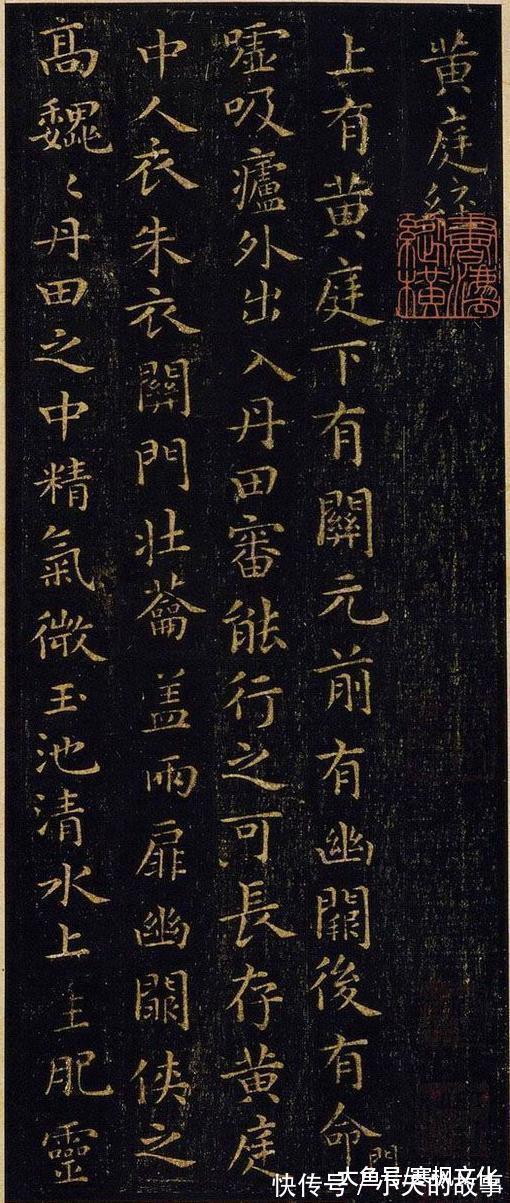 黄庭經
上有黄庭下有關元前有幽闕後有命門
嘘吸廬外出入丹田審能行之可長存黄庭
中人衣朱衣關門壮蘥盖兩扉幽闕俠之
高巍〻丹田之中精氣微玉池清水上生肥靈
大鱼号/寒枫文化
快传号/小天的故事